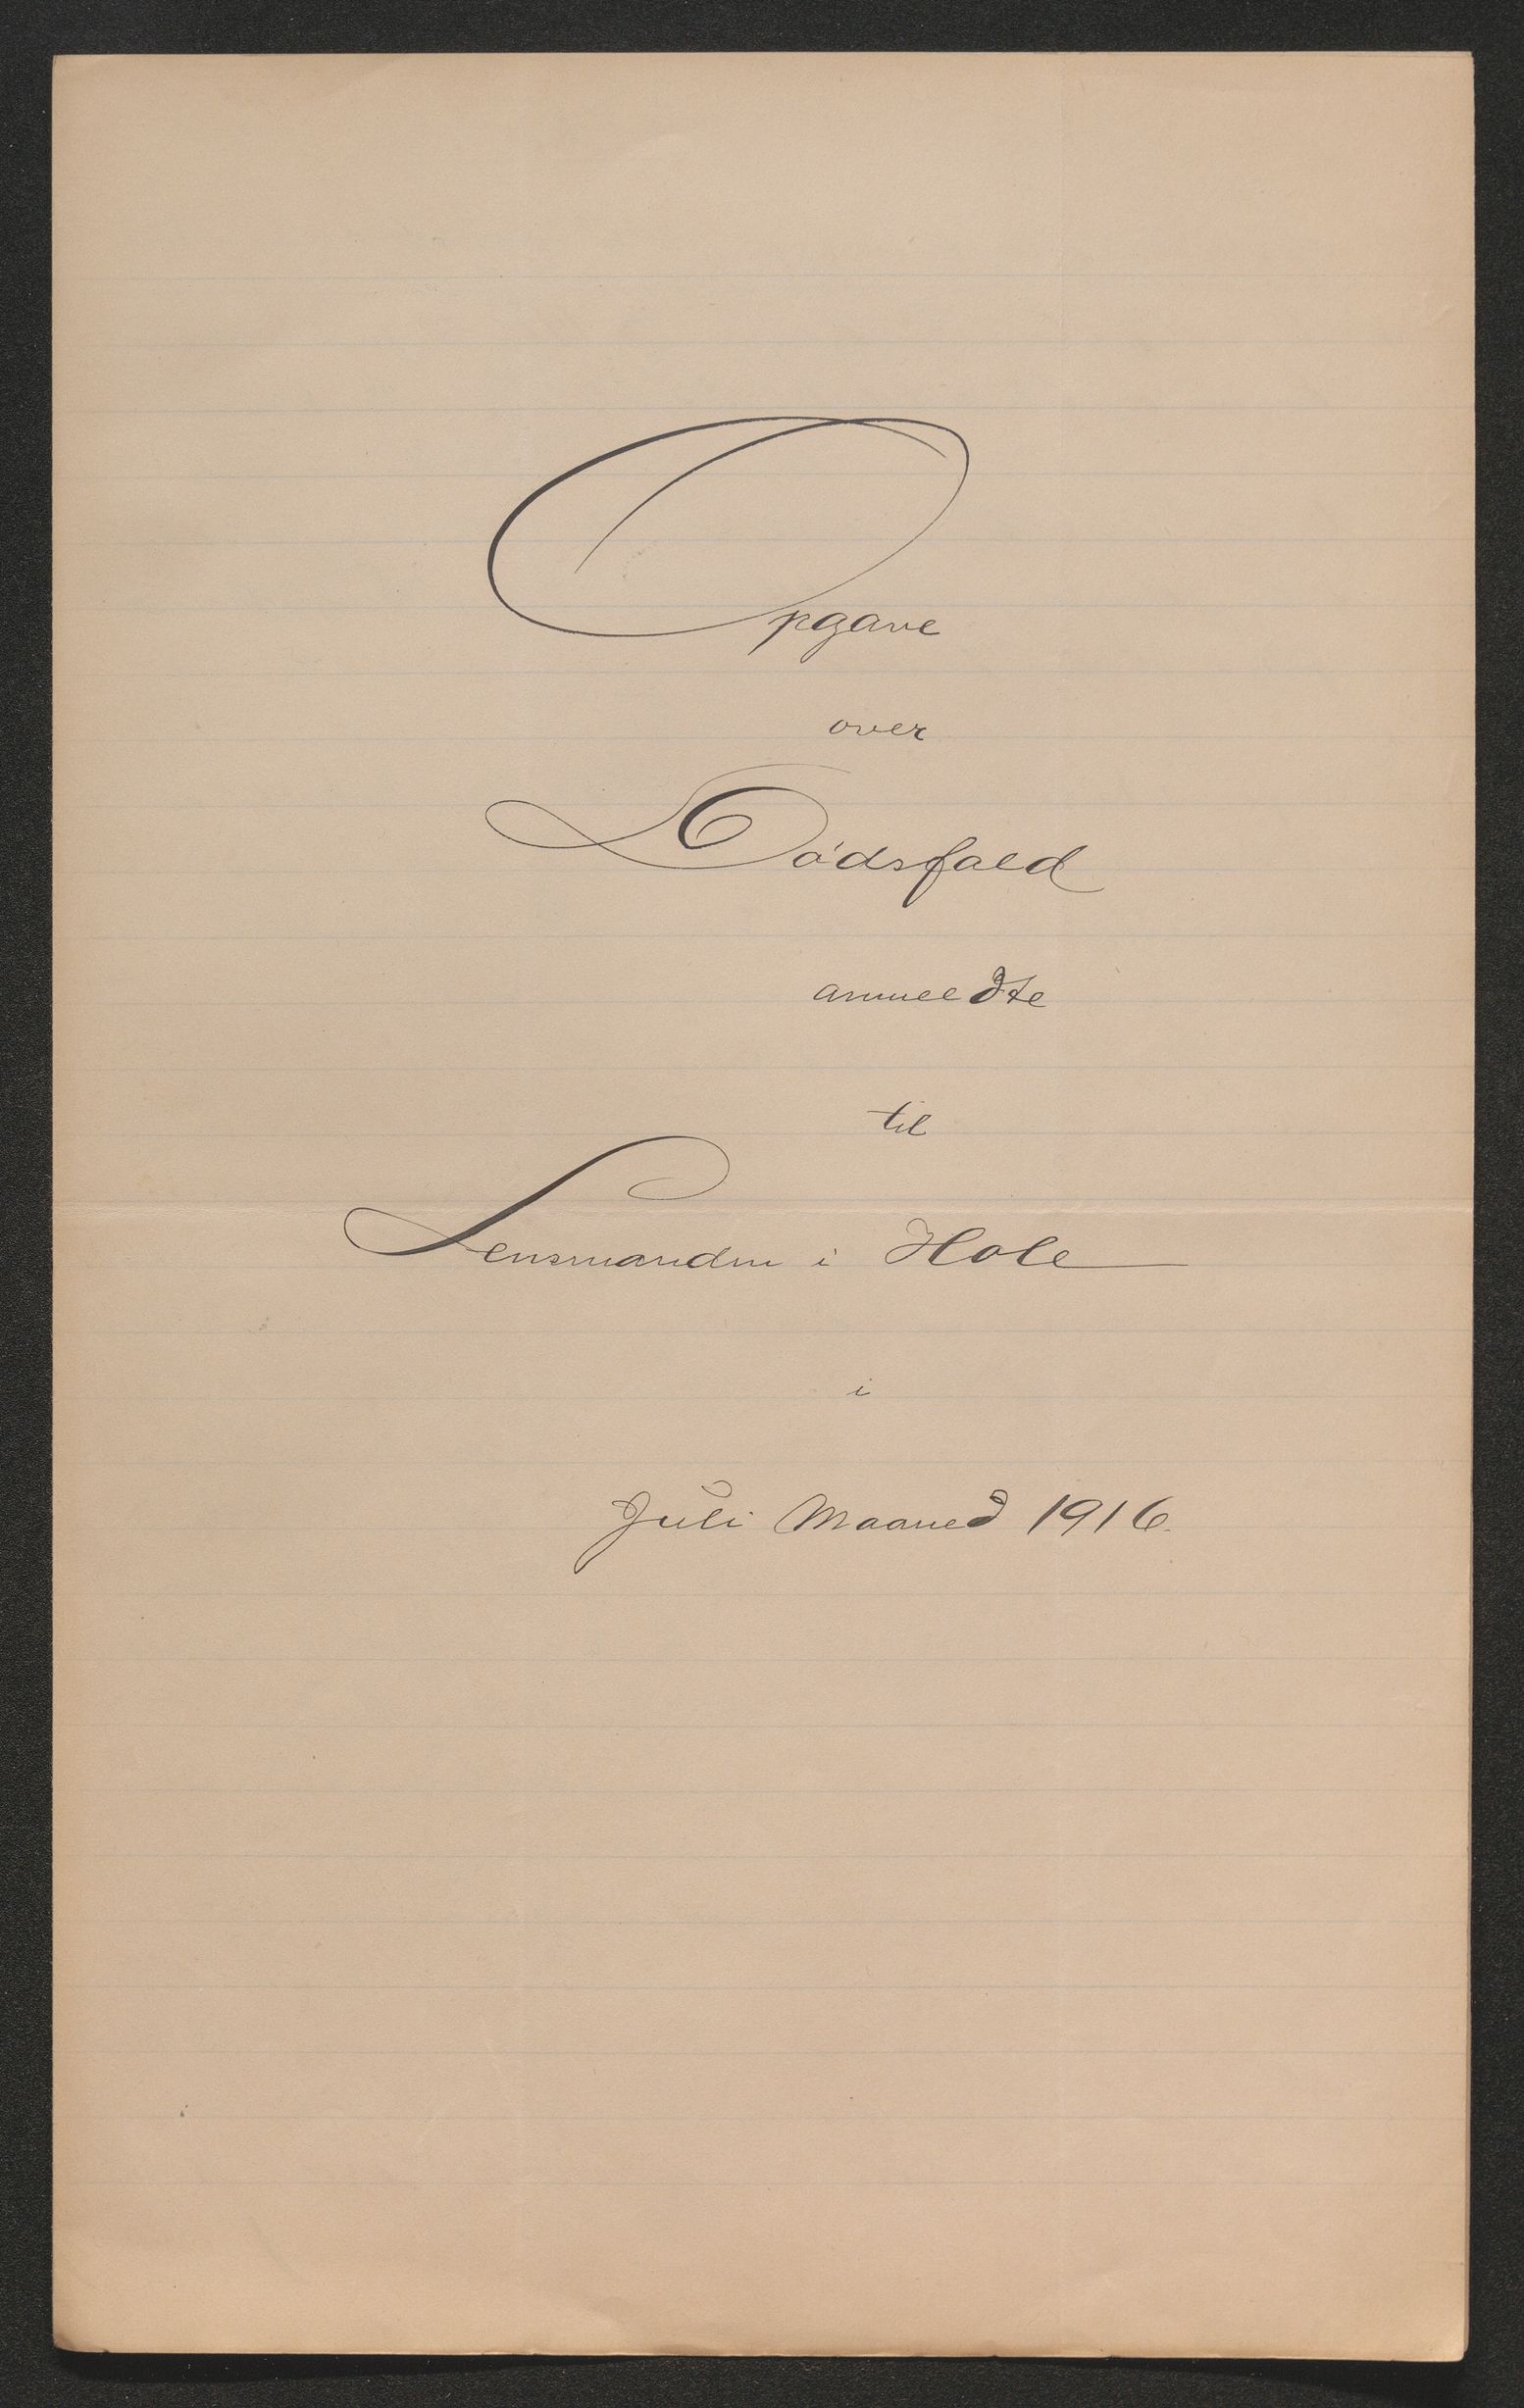 Opgave
over
Dødsfald
anmeldte
til
Lensmanden i Hole
i
Juli Maaned 1916.